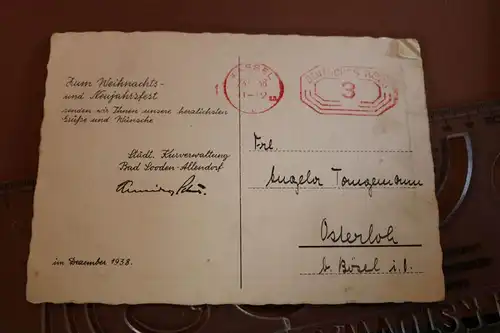 Zum Weihnachts-
und Neujahrsfest
senden wir Ihnen unsere herzlichsten
Grüße und Wünsche
Städt. Kurverwaltung
Bad Sooden-Allendorf
im Dezember 1938.
1
KASSEL
DEUTSCHES REICH
3
Frl.
Angela Tomgemann
Osterloh
b. Bösel i. O.